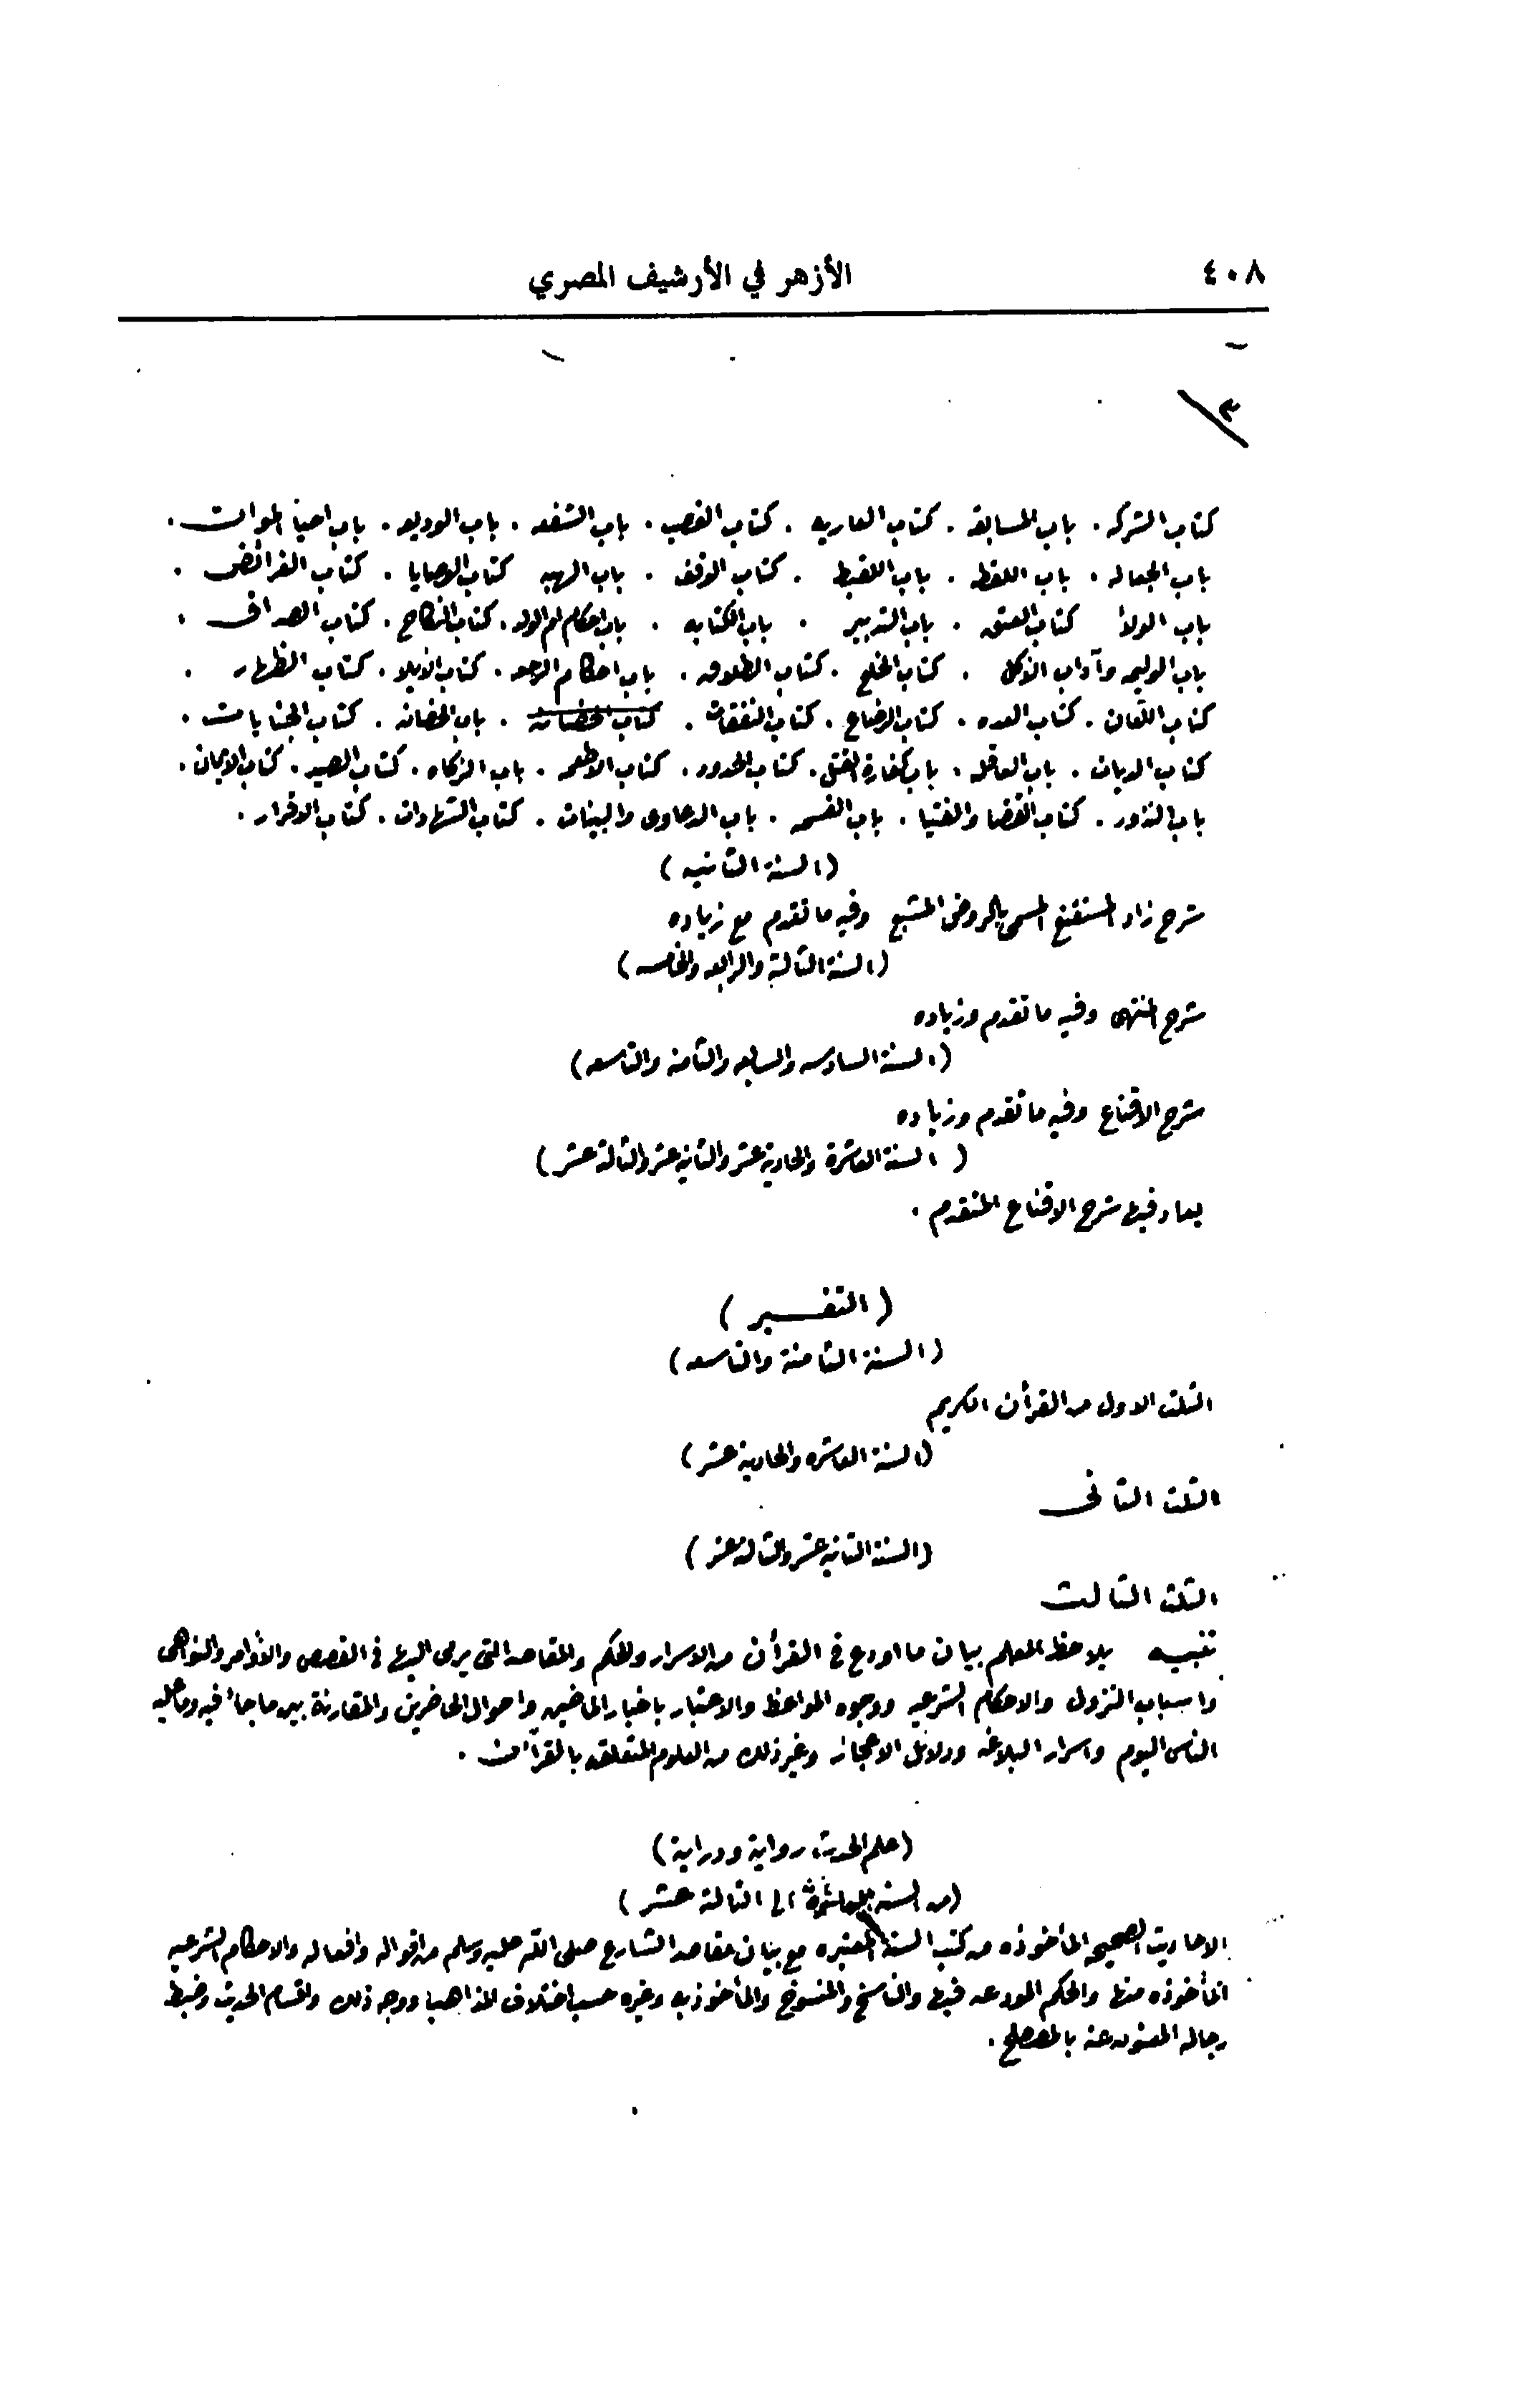 ٤٠٨ الأزهر في الأرشيف المصري
٣
كتاب الشركه . باب المسابقة . كتاب العاريه . كتاب الغصب . باب الشفعه . باب الوديعه . باب احيا الموات .
باب الجعاله . باب اللقطه . باب اللقيط . كتاب الوقف . باب الهبه كتاب الوصايا . كتاب الفرائض .
باب الولاء كتاب العتق . باب التدبير . باب الكتابه . باب احكام ام الولد . كتاب النكاح . كتاب الصداق .
باب الوليمه وآداب الأكل . كتاب الخلع . كتاب الطلاق . باب احكام الرجعه . كتاب الأيلا . كتاب الظهار .
كتاب اللعان . كتاب العده . كتاب الرضاع . كتاب النفقات . كتاب الحضانه . باب الحضانه . كتاب الجنايات .
كتاب الديات . باب العاقله . باب كفارة القتل . كتاب الحدود . كتاب الاطعمه . باب الزكاه . كتاب الصيد . كتاب الايمان .
باب النذور . كتاب القضا والفتيا . باب القسمه . باب الدعاوى والبينات . كتاب الشهادات . كتاب الاقرار .
(السنة الثانيه)
شرح زاد المستقنع المسمى بالروض المشبع وفيه ما تقدم مع زياده
(السنة الثالثة والرابعه والخامسه)
شرح المنتهى وفيه ما تقدم وزياده
(السنة السادسه والسابعه والثامنه والتاسعه)
شرح الاقناع وفيه ما تقدم وزياده
(السنة العاشرة والحادية عشر والثانية عشر والثالثة عشر)
يعاد فيها شرح الاقناع المتقدم .
(التفسير)
(السنة الثامنة والتاسعه)
الثلث الاول من القرأن الكريم
(السنة العاشره والحادية عشر)
الثلث الثانى
(السنة الثانية عشر والثالثة عشر)
الثلث الثالث
تنبيه يلاحظ المعلم بيان ما اودع فى القرأن من الاسرار والحكم والمقاصد التى يرمى اليها فى القصص والأوامر والنواهى
واسباب النزول والاحكام الشرعيه ووجوه المواعظ والاعتبار باخبار الماضين واحوال الحاضرين والمقارنة بين ما جاء فيه وما عليه
الناس اليوم واسرار البلاغه ودلائل الاعجاز وغير ذلك من العلوم المتعلقه بالقرآن .
(علم الحديث رواية ودراية)
(من السنة العاشرة الى الثالثة عشر)
الاحاديث الصحيحه المأخوذه من كتب السنة المعتبره مع بيان مقاصد الشارع صلى الله عليه وسلم من اقواله وافعاله والاحكام الشرعيه
المأخوذه منها والحكم المودعه فيها والناسخ والمنسوخ والمأخوذ به وغيره حسب اختلاف المذاهب ووجه ذلك واقسام الحديث وضبط
رجاله المعنون عنه بالمصطلح .